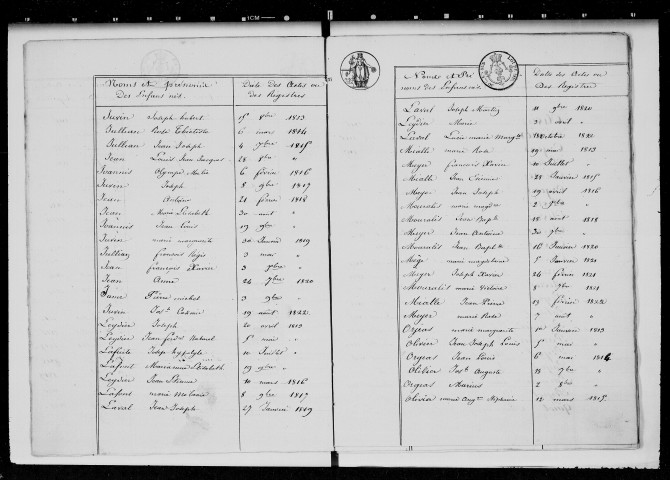 Noms et prénoms
Des Enfans nés.
Date des Actes ou
Des Registres
Juvin Joseph hubert 15 8bre 1813
Jullian Rose 6 mars 1814
Jullian Jean Joseph 4 7bre 1815
Jean Louis Jean Jacques 28 8bre "
Joannis Olympe 6 février 1816
Juvin Joseph 8 9bre 1817
Jean Antoine 21 février 1818
Jean Marie Elisabeth 30 août "
Joannis Jean Louis 19 9bre "
Juvin marie marguerite 30 Janvier 1819
Jullian françois Régis 3 mai "
Jean françois Xavier 3 7bre "
Jean Anne 24 7bre 1820
Pierre michel 3 9bre "
Juvin 19 août 1822
Leydier Joseph 20 avril 1813
Leydier Jean 5 mai "
Joseph hypolyte 10 Juillet "
Lafont Elisabeth 19 9bre "
Leydier Jean Etienne 10 mars 1816
Lafont marie melanie 8 9bre 1817
Laval Jean Joseph 27 Janvier 1819
Noms et Pré
noms Des Enfans nés
Dates des Actes ou
des Registres
Laval Joseph Martin 11 9bre 1820
Leydier Marie avril "
Laval marie Margte octobre 1822
Mialle marie Rose 19 mai 1813
Meyer françois Xavier 10 Juillet "
Mialle Jean 28 Janvier 1815
Meyer Jean Joseph 19 avril 1816
Mouralis marie magne 2 7bre "
Mouralis Jean Bapte 15 août 1818
Meyer Jean Antoine 30 9bre "
Mouralis Jean Bapte 16 Janvier 1820
marie magdeleine 5 Janvier 1821
Meyer Joseph Xavier 24 février 1821
Mouralis marie Victoire 8 9bre 1821
Mialle Jean Pierre 19 février 1822
Meyer marie Rose 7 août "
Orgeas marie marguerite 1er Janvier 1813
Olivier Jean Joseph Louis 5 mai "
Orgeas Jean Louis 6 mai 1814
Olivier Auguste 13 7bre "
Orgeas Marius 2 8bre "
Olivier marie Augte 12 mars 1815